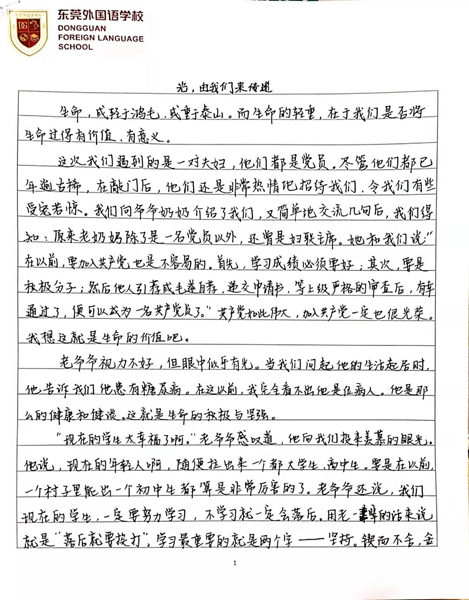 东莞外国语学校
DONGGUAN
FOREIGN LANGUAGE
SCHOOL
光，由我们来传递
生命，或轻于鸿毛，或重于泰山。而生命的轻重，在于我们是否将
生命过得有价值、有意义。
这次我们遇到的是一对夫妇，他们都是党员。尽管他们都已
年逾古稀，在敲门后，他们还是非常热情地招待我们，令我们有些
受宠若惊。我们向爷爷奶奶介绍了我们，又简单地交流几句后，我们得
知：原来老奶奶除了是一名党员以外，还曾是妇联主席。她和我们说“
在以前，要加入共产党也是不容易的。首先，学习成绩必须要好；其次，要是
积极分子；然后他人引荐或毛遂自荐，递交申请书，等上级严格的审查后，有幸
通过了，便可以成为一名共产党员了。”共产党如此伟大，加入共产党一定也很光荣。
我想这就是生命的价值吧。
老爷爷视力不好，但眼中似乎有光。当我们问起他的生活起居时，
他告诉我们他患有糖尿病。在这以前，我完全看不出他是位病人。他是那
么的健康和健谈。这就是生命的积极与坚强。
“现在的学生太幸福了啊。”老爷爷感叹道，他向我们投来羡慕的眼光。
他说，现在的年轻人啊，随便拉出来一个都大学生，高中生。要是在以前，
一个村子里能出一个初中生都算是非常厉害的了。老爷爷还说，我们
现在的学生，一定要努力学习，不学习就一定会落后。用老一辈的话来说
就是“落后就要挨打”。学习最重要的就是两个字——坚持。锲而不舍，金
1